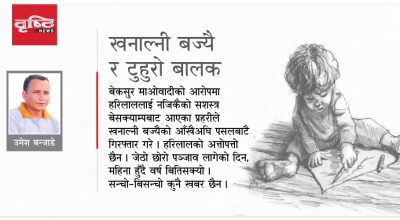 दृष्टि
NEWS
खनाल्नी बज्यै
र टुहुरो बालक
बेकसुर माओवादीको आरोपमा
हरिलाललाई नजिकैको सशस्त्र
बेसक्याम्पबाट आएका प्रहरीले
खनाल्नी बज्यैको आँखैअघि पसलबाटै
गिरफ्तार गरे । हरिलालको अत्तोपत्तो
छैन । जेठो छोरो पञ्जाव लागेको दिन,
महिना हुँदै वर्ष बितिसक्यो ।
सन्चो-बिसन्चो कुनै खबर छैन ।
उमेश बन्जाडे